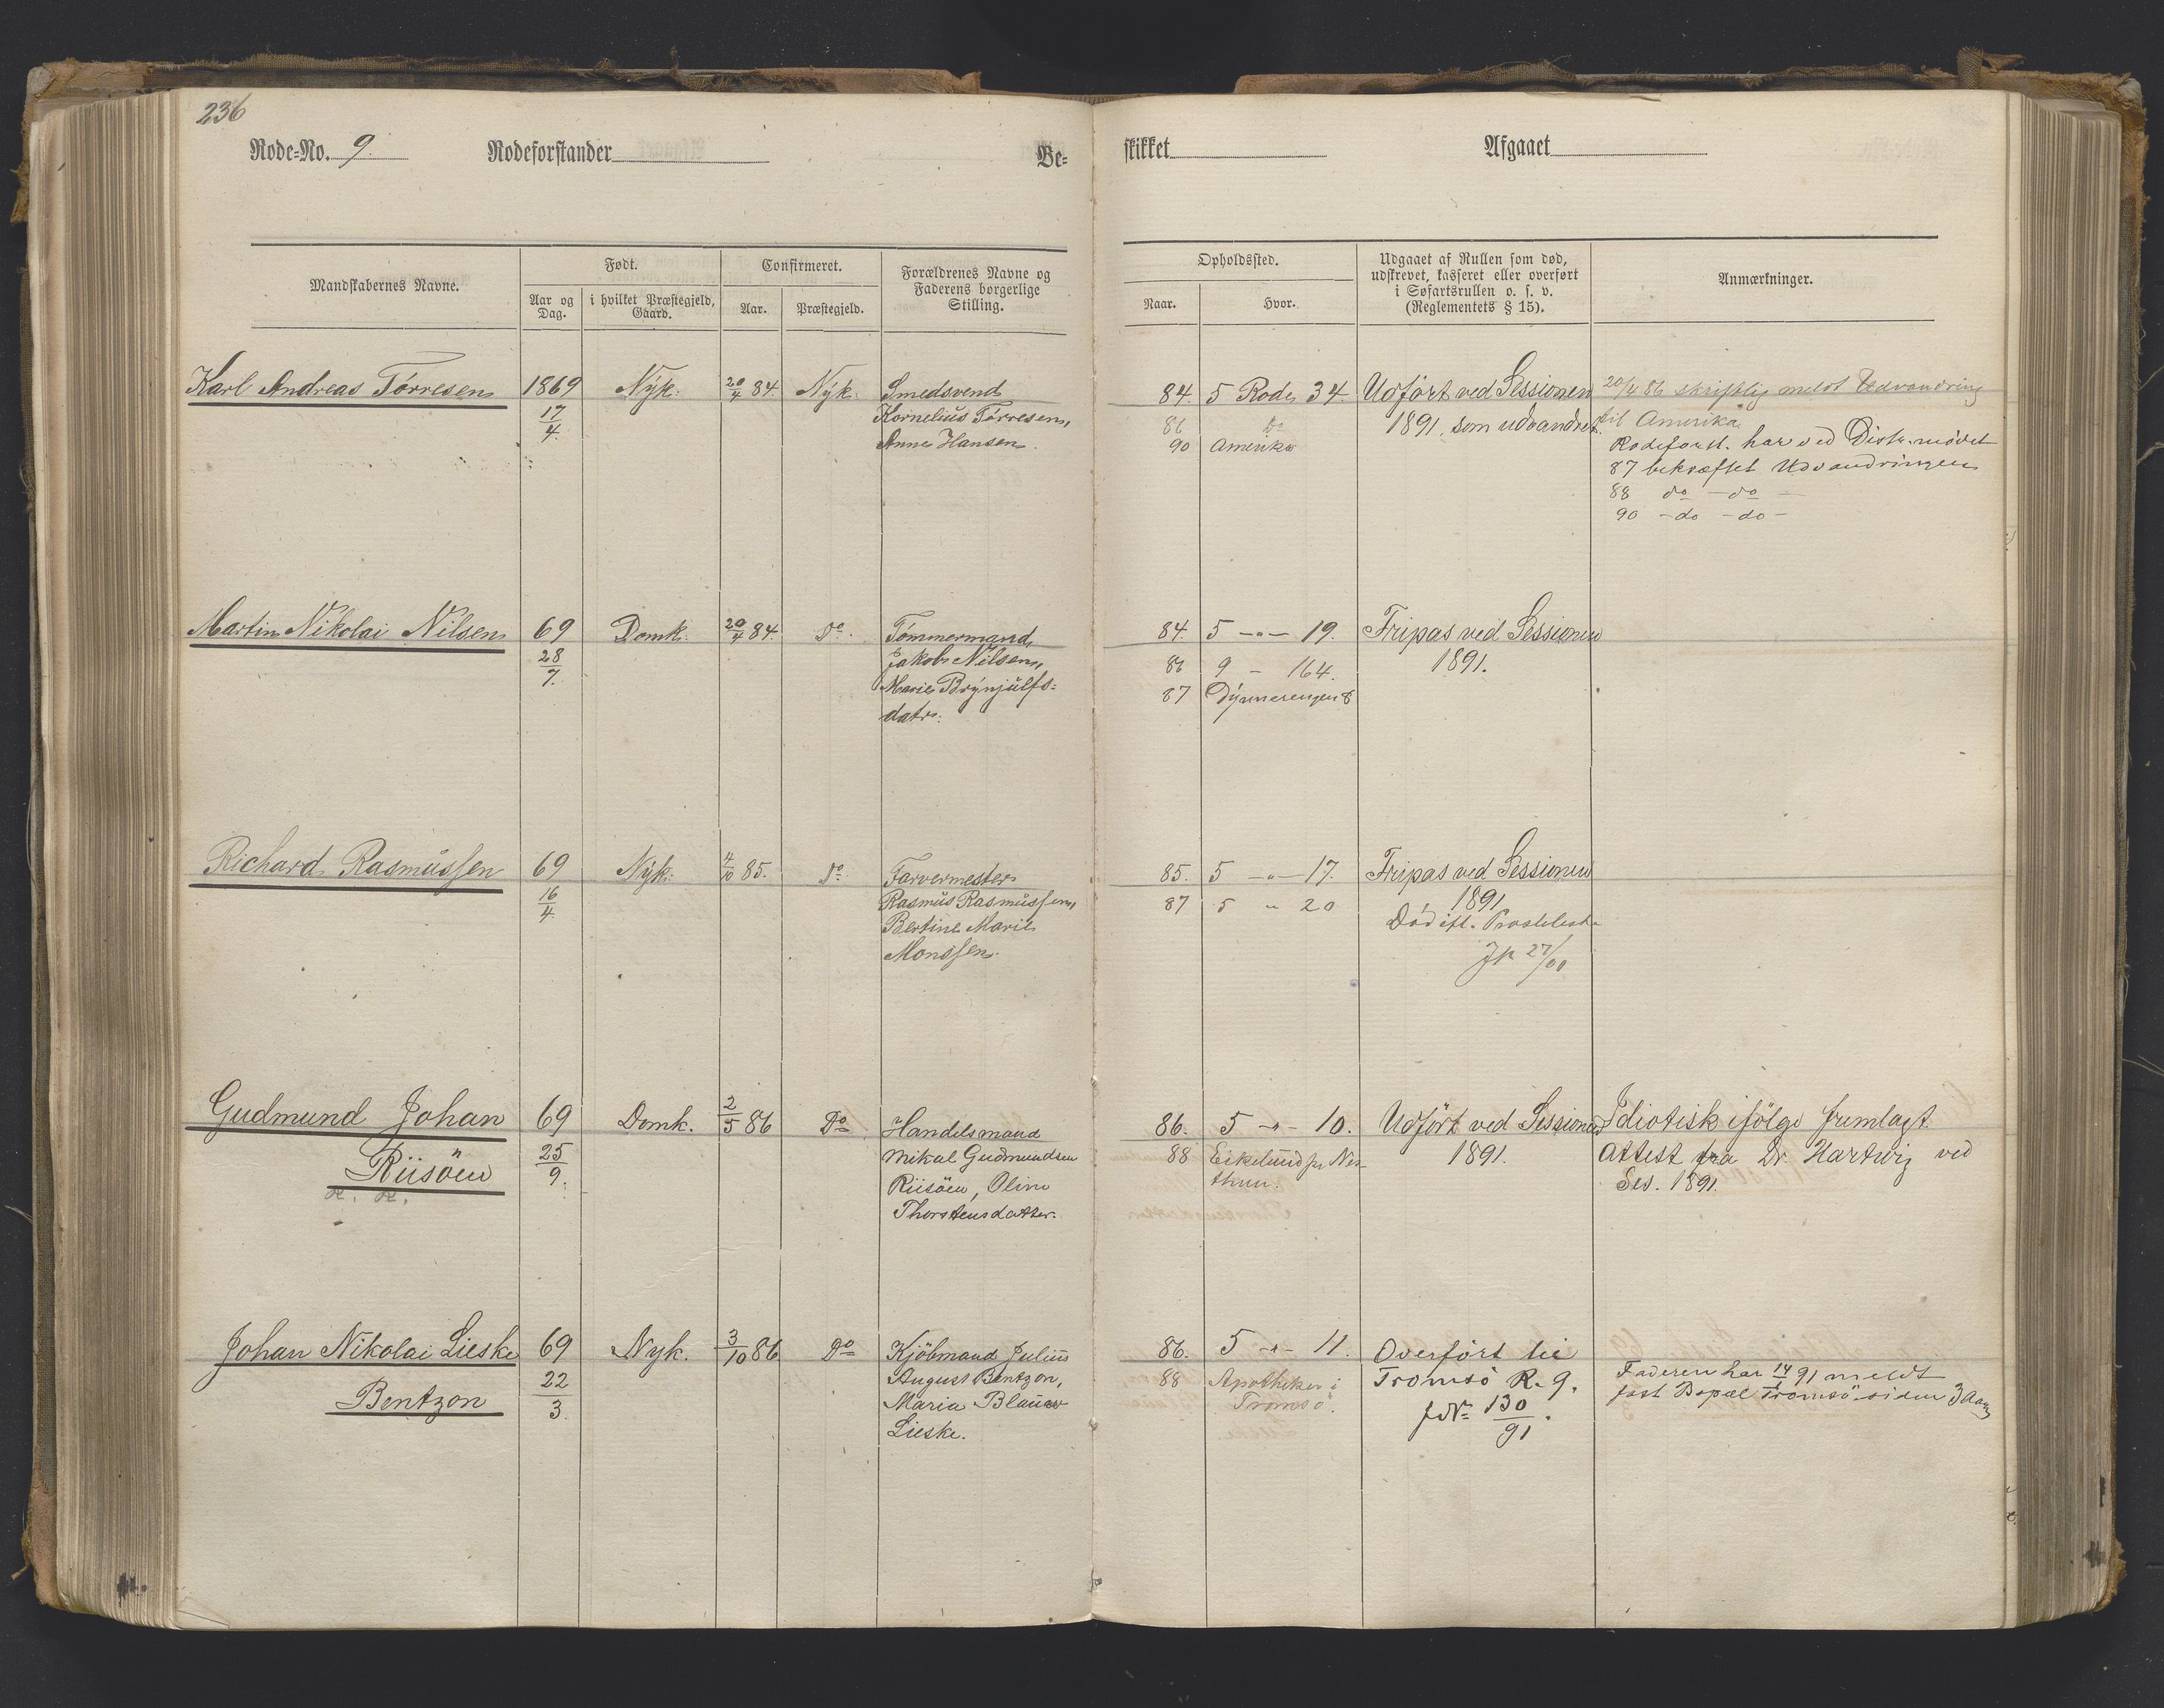 236
Rode=No. 9. Rodeforstander Be=
skikket Afgaaet
Mandskabernes Navne.
Født.
Aar og Dag.
i hvilket Præstegjeld, Gaard.
Confirmeret.
Aar.
Præstegjeld.
Forældrenes Navne og
Faderens borgerlige
Stilling.
Opholdssted.
Naar.
Hvor.
Udgaaet af Rullen som død,
udskrevet, kasseret eller overført
i Søfartsrullen o. s. v.
(Reglementets § 15).
Anmærkninger.
Karl Andreas Tørresen 1869 Nyk. 20/4 84. Nyk. Smedsvend
17/4. Kornelius Tørresen,
Anne Hansen.
84. 5 Rode 34 Udført ved Sessionen 20/4 86 skriftlig meldt Udvandring
86 Do 1891, som udvandret. til Amerika.
90 Amerika Rodeforst. har ved Distr. mødet
87 bekræftet Udvandringen
88 do - do -
90 - do - do -
Martin Nikolai Nilsen 69 Domk. 20/4 84. Do. Tømmermand,
28/7. Jakob Nilsen,
Marie Brynjulfs=
datr.
84. 5 -"- 19. Fripas ved Sessionen
86 9 - 164. 1891.
87 8
Richard Rasmussen 69 Nyk. 4/10 85. Do. Farvermester
16/4. Rasmus Rasmussen,
Bertine Marie
Monssen.
85. 5 -"- 17. Fripas ved Sessionen
87 5 " 20 1891
Død ifl.
Jr 27/00
Gudmund Johan 69 Domk. 2/5 86 Do Handelsmand
Riisöen 25/9. Mikal Gudmundsen
Riisöen, Oline
Thorstensdatter.
86. 5 -"- 10. Udført ved Sessionen Idiotisk ifölge fremlagt
88 Eikelund pr Nes- 1891. Attest fra Dr. Hartwig ved
thun. Ses. 1891.
Johan Nikolai Lieske 69 Nyk. 3/10 86 Do Kjöbmand Julius
Bentzon 22/3. August Bentzon,
Maria Blauw
Lieske.
86. 5 -"- 11. Overført til Faderen har 14/1 91 meldt
88 Apotheker i Tromsö R. 9. fast Bopæl Tromsö siden 3 Aar
Tromsö. JN= 130/91.